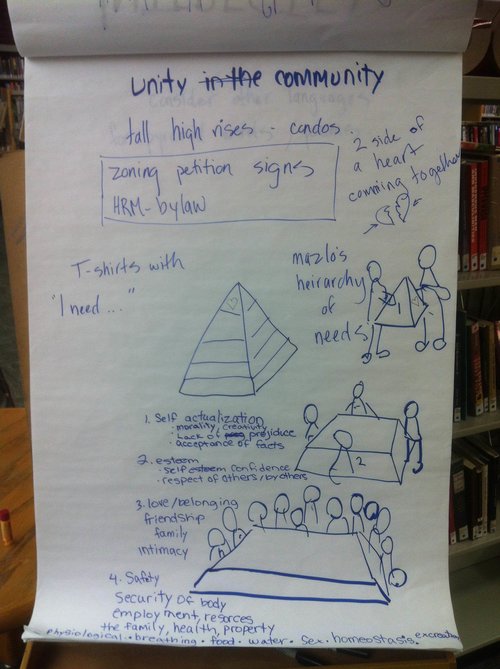 unity in the community
tall high rises - condos.
zoning petition signs
HRM-bylaw
2 side of
a heart
comming together
T-shirts with
"I need..."
mazlo's
heirarchy
of
needs
1
1. Self actualization
• morality, creativity
• Lack of prejiduce
• acceptance of facts
2. esteem
• self esteem confidence
• respect of others/by others
2
3. love/belonging
friendship
family
intimacy
4. Safety
Security of body
employment, resorces
the family, health, property
physiological • breathing • food • water • sex • homeostasis. excreation